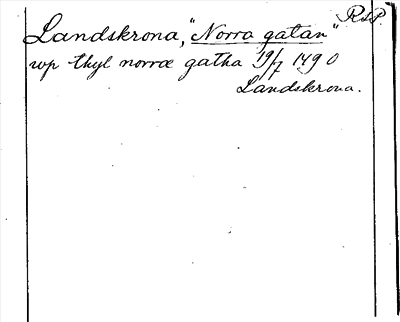 RLP.
Landskrona, "Norra gatan"
wp thyl norræ gatha 19/7 1490
Landskrona.